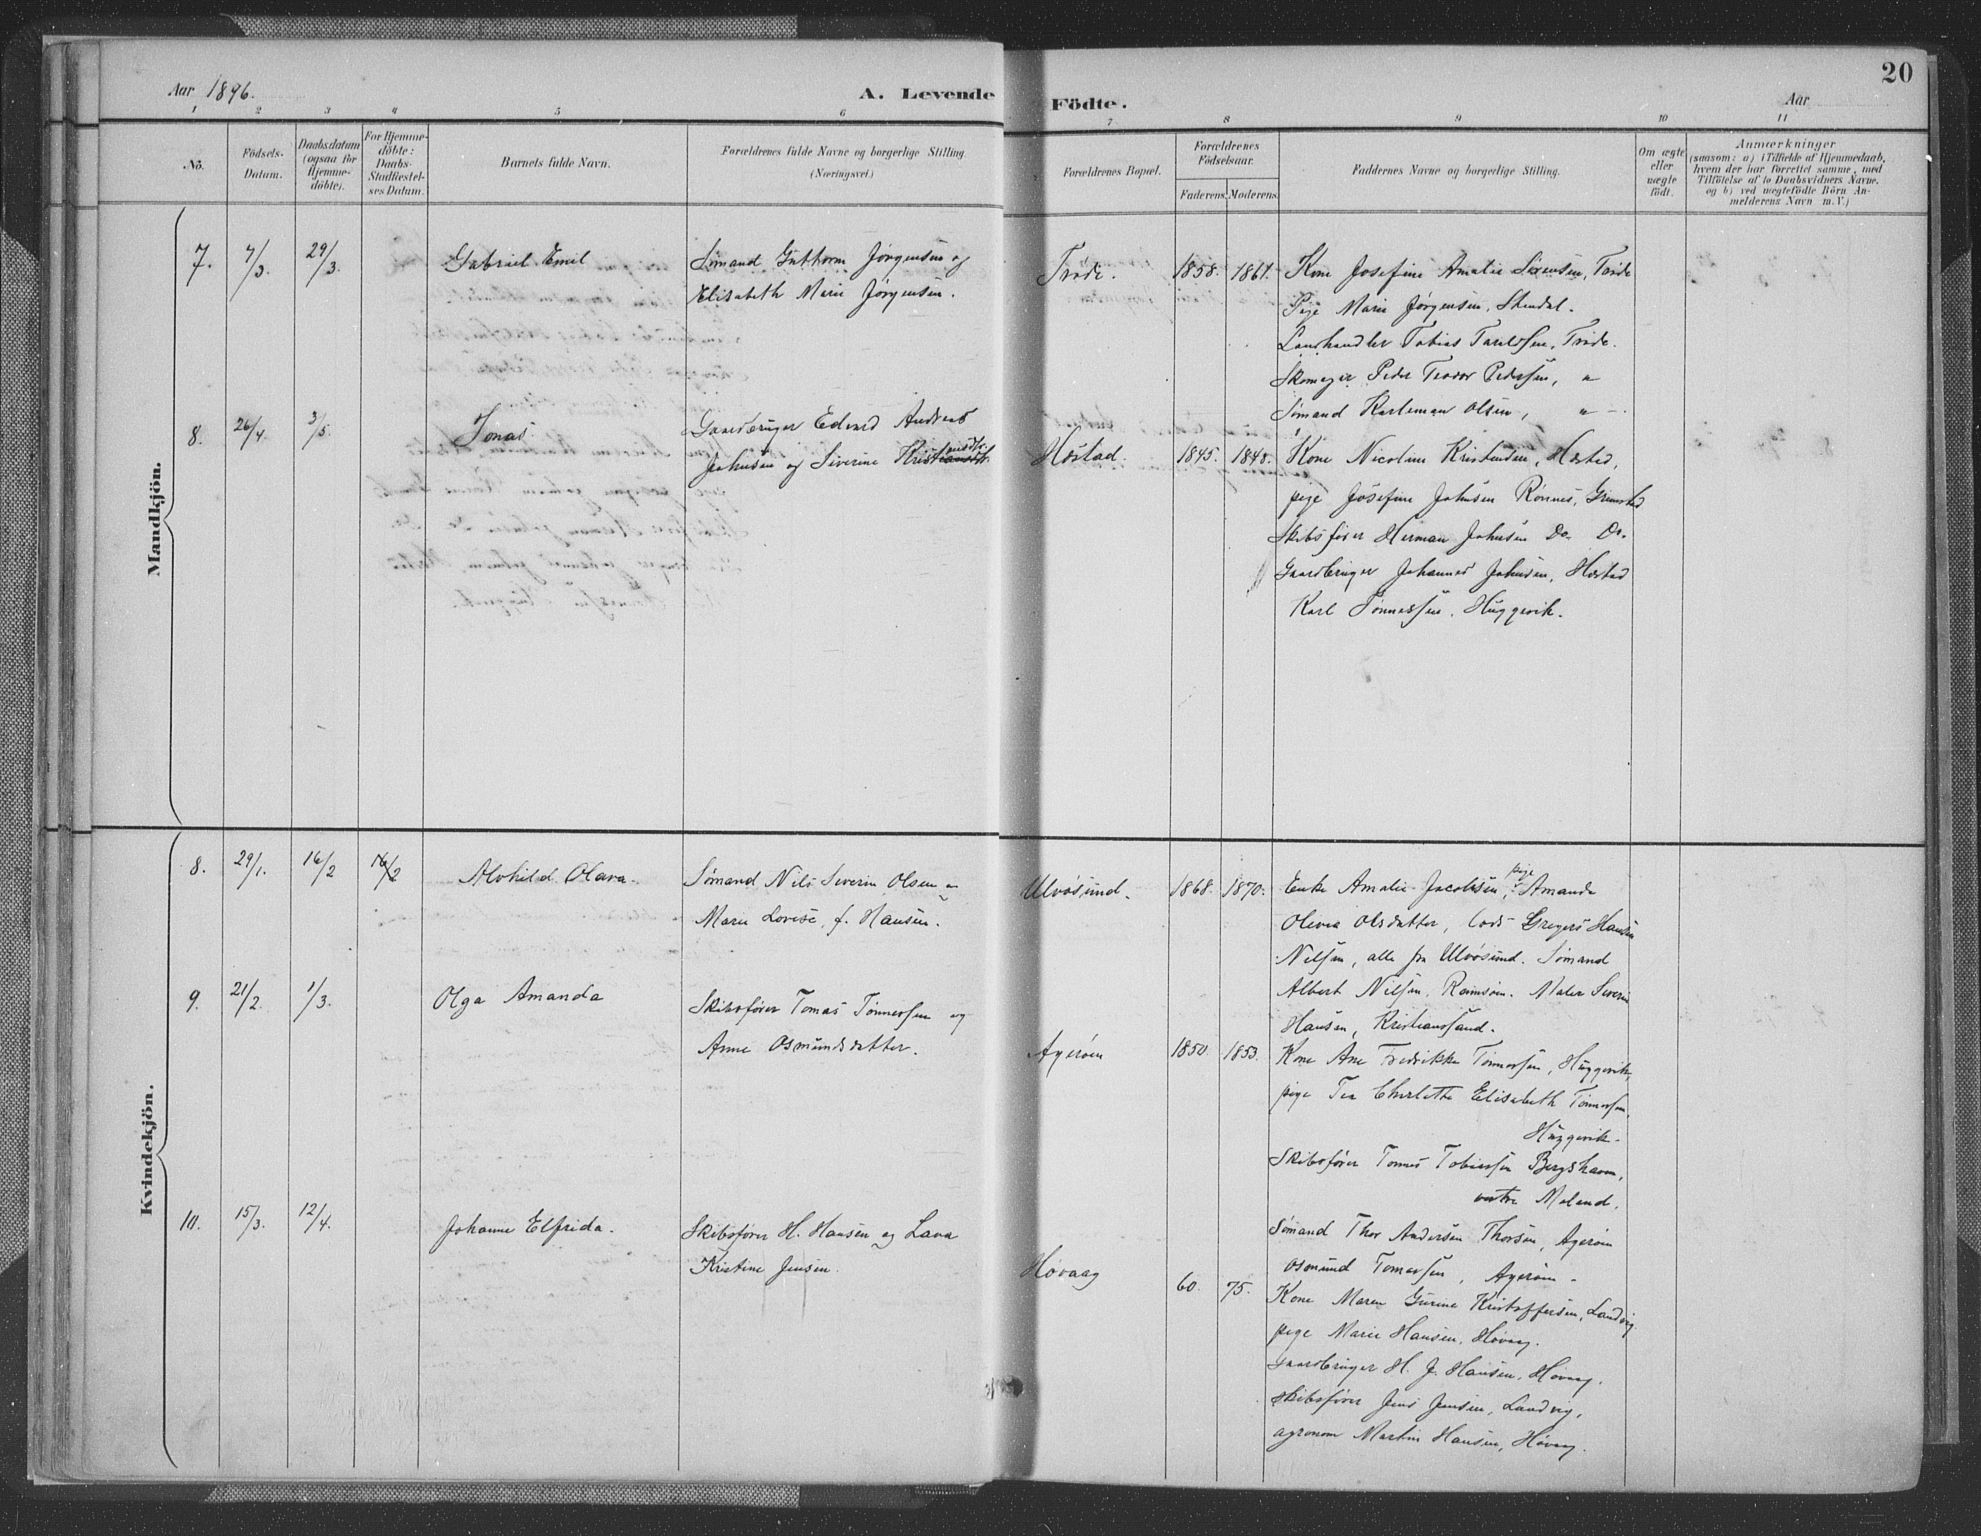 20
Aar 1896.
A. Levende Födte.
Aar
1 2 3 4 5 6 7 8 9 10 11
No.
Födsels-Datum.
Daabsdatum (ogsaa for Hjemmedöbte).
For Hjemmedöbte: Daabs-Stadfæstelses Datum.
Barnets fulde Navn.
Forældrenes fulde Navne og borgerlige Stilling (Næringsvei.)
Forældrenes Bopæl.
Forældrenes Födselsaar.
Faderens. Moderens.
Faddernes Navne og borgerlige Stilling.
Om ægte eller uægte födt.
Anmærkninger
(saasom: a) i Tilfælde af Hjemmedaab,
hvem der har forrettet samme, med
Tilföielse af to Daabsvidners Navne,
og b) ved uægtefödte Börn An-
melderens Navn m. V.)
Mandkjön.
7. 7/3. 29/3. Gabriel Emil
Sømand Guttorm Jørgensen og
Elisabeth Marie Jørgensen.
Trøde. 1858. 1861.
Kone Josefine Amalie Sørensen, Trøde
Pige Marie Jørgensen, Stendal.
Landhandler Tobias Taraldsen, Trøde.
Skomager Peder Teodor Pedersen, "
Sømand Karleman Olsen, "
8. 26/4. 3/5. Jonas.
Gaardbruger Edvard Andreas
Johnsen og Severine
Hæstad. 1845. 1848.
Kone Nicoline Kristensen, Hæstad,
pige Josefine Johnsen Rønnes, Grimstad
Skibsfører Herman Johnsen Do. Do.
Gaardbruger Johannes Johnsen, Hæstad
Karl Tønnessen, Huggevik.
Kvindekjön.
8. 29/1. 16/2 16/2 Alvhild Olava.
Sømand Nils Severin Olsen og
Marie Lovise, f. Hansen.
Ulvøsund. 1868. 1870.
Enke Amalie Jacobsen, pige Amanda
Olevia Olsdatter, Lods Gregers Hansen
Nilsen, alle fra Ulvøsund. Sømand
Albert Nilsen, Ramsøen. Maler Severin
Hansen, Kristianssand.
9. 21/2. 1/3. Olga Amanda
Skibsfører Tomas Tønnessen og
Anne Osmundsdatter.
Agerøen 1850. 1853.
Kone Ane Fredrikke Tønnessen, Huggevik,
pige Tea Charlotte Elisabeth Tønnessen,
Huggevik.
Skibsfører Tønnes Tobiassen Bergshavn,
vestre Moland.
Sømand Thor Andersen Thorsen, Agerøen
Osmund Tomassen, Agerøen.
10. 15/3. 12/4. Johanne Elfrida.
Skibsfører H. Hansen og Lava
Kristine Jensen.
Høvaag 60. 75.
Kone Maren Gurine Kristoffersen, Landvig
pige Marie Hansen, Høvaag.
Gaardbruger H. J. Hansen, Høvaag.
Skibsfører Jens Jensen, Landvig,
agronom Martin Hansen, Høvaag.